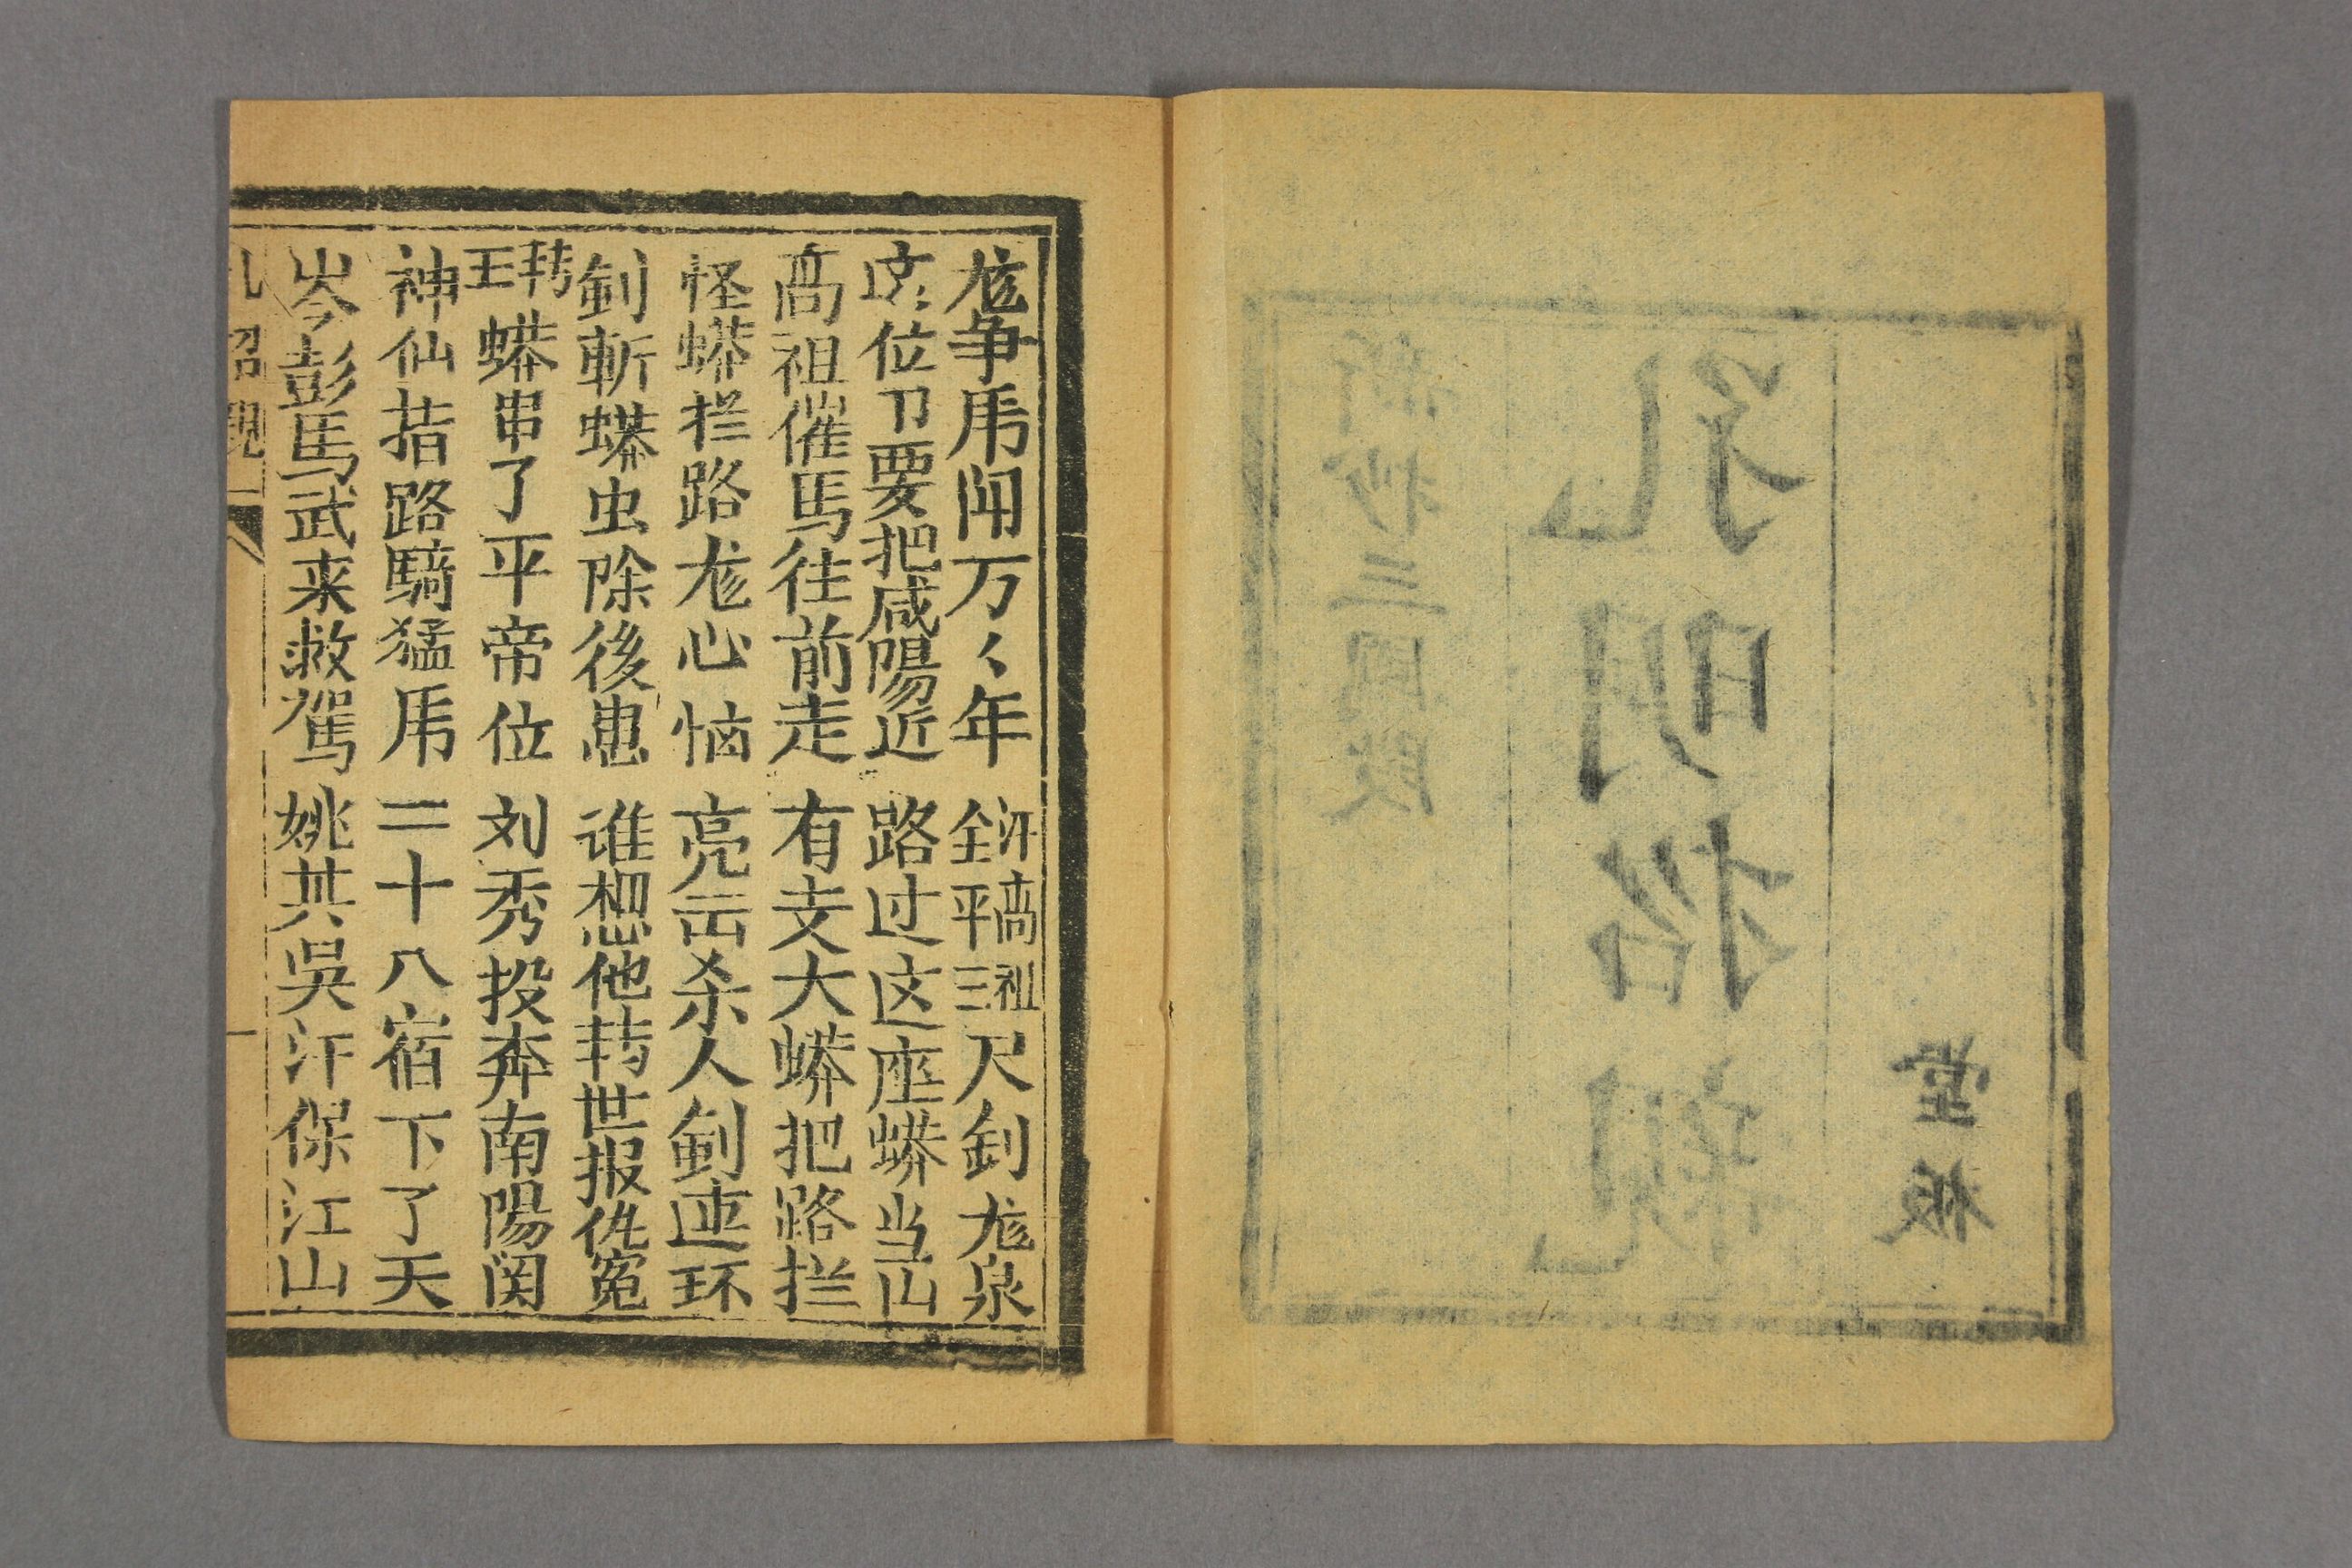 堂板
孔明招親
新抄三國段
龙争虎闹万々年 汗高祖全平三尺釗龙泉
这位卩要把咸陽近 路过这座蟒当山
高祖催馬往前走 有支大蟒把路拦
怪蟒拦路龙心恼 亮出杀人釗連环
釗斬蟒虫除後患 谁想他转世报仇冤
转王蟒串了平帝位 刘秀投奔南陽関
神仙指路騎猛虎 二十八宿下了天
岑彭馬武来救駕 姚其吳汗保江山
孔招親 一